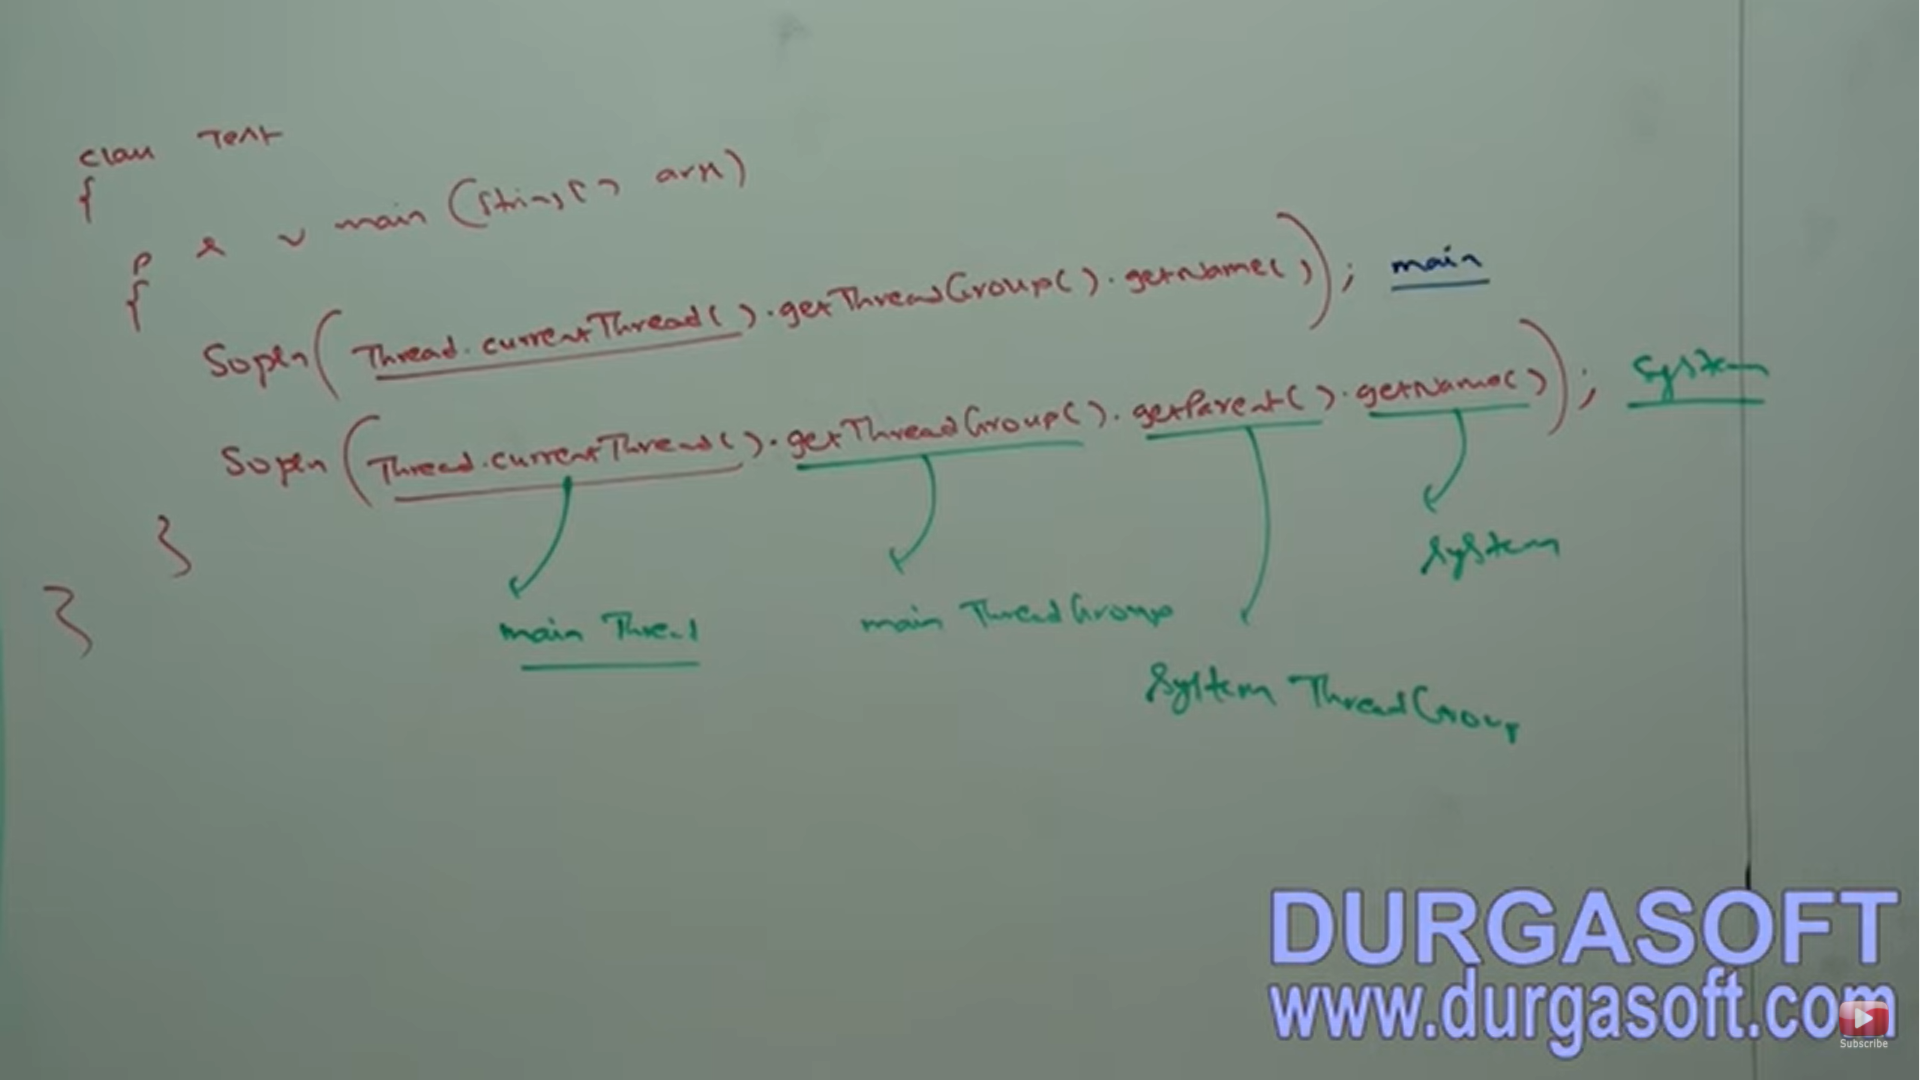 class Test
{
p s v main (String[] args)
{
Sopln (Thread.currentThread().getThreadGroup().getName()); main
Sopln (Thread.currentThread().getThreadGroup().getParent().getName()); System
}
}
System
main Thread
main ThreadGroup
System ThreadGroup
DURGASOFT
www.durgasoft.com
Subscribe